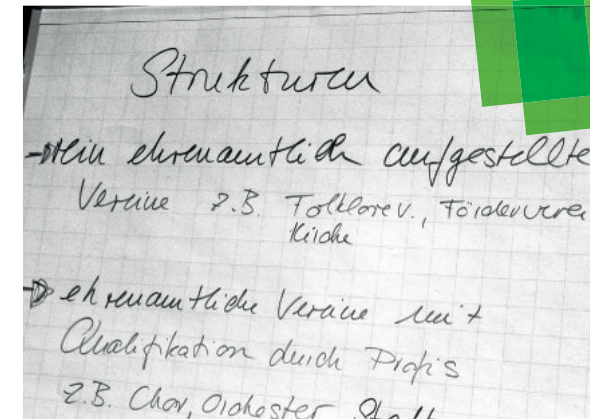 Strukturen
→ rein ehrenamtlich aufgestellte
Vereine z.B. Folklorev., Förderverei
Kirche
→ ehrenamtliche Vereine mit
Qualifikation durch Profis
z.B. Chor, Orchester